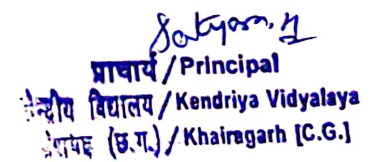 Satyam. M
प्राचार्य / Principal
केन्द्रीय विद्यालय / Kendriya Vidyalaya
(छ.ग.) / Khairagarh [C.G.]